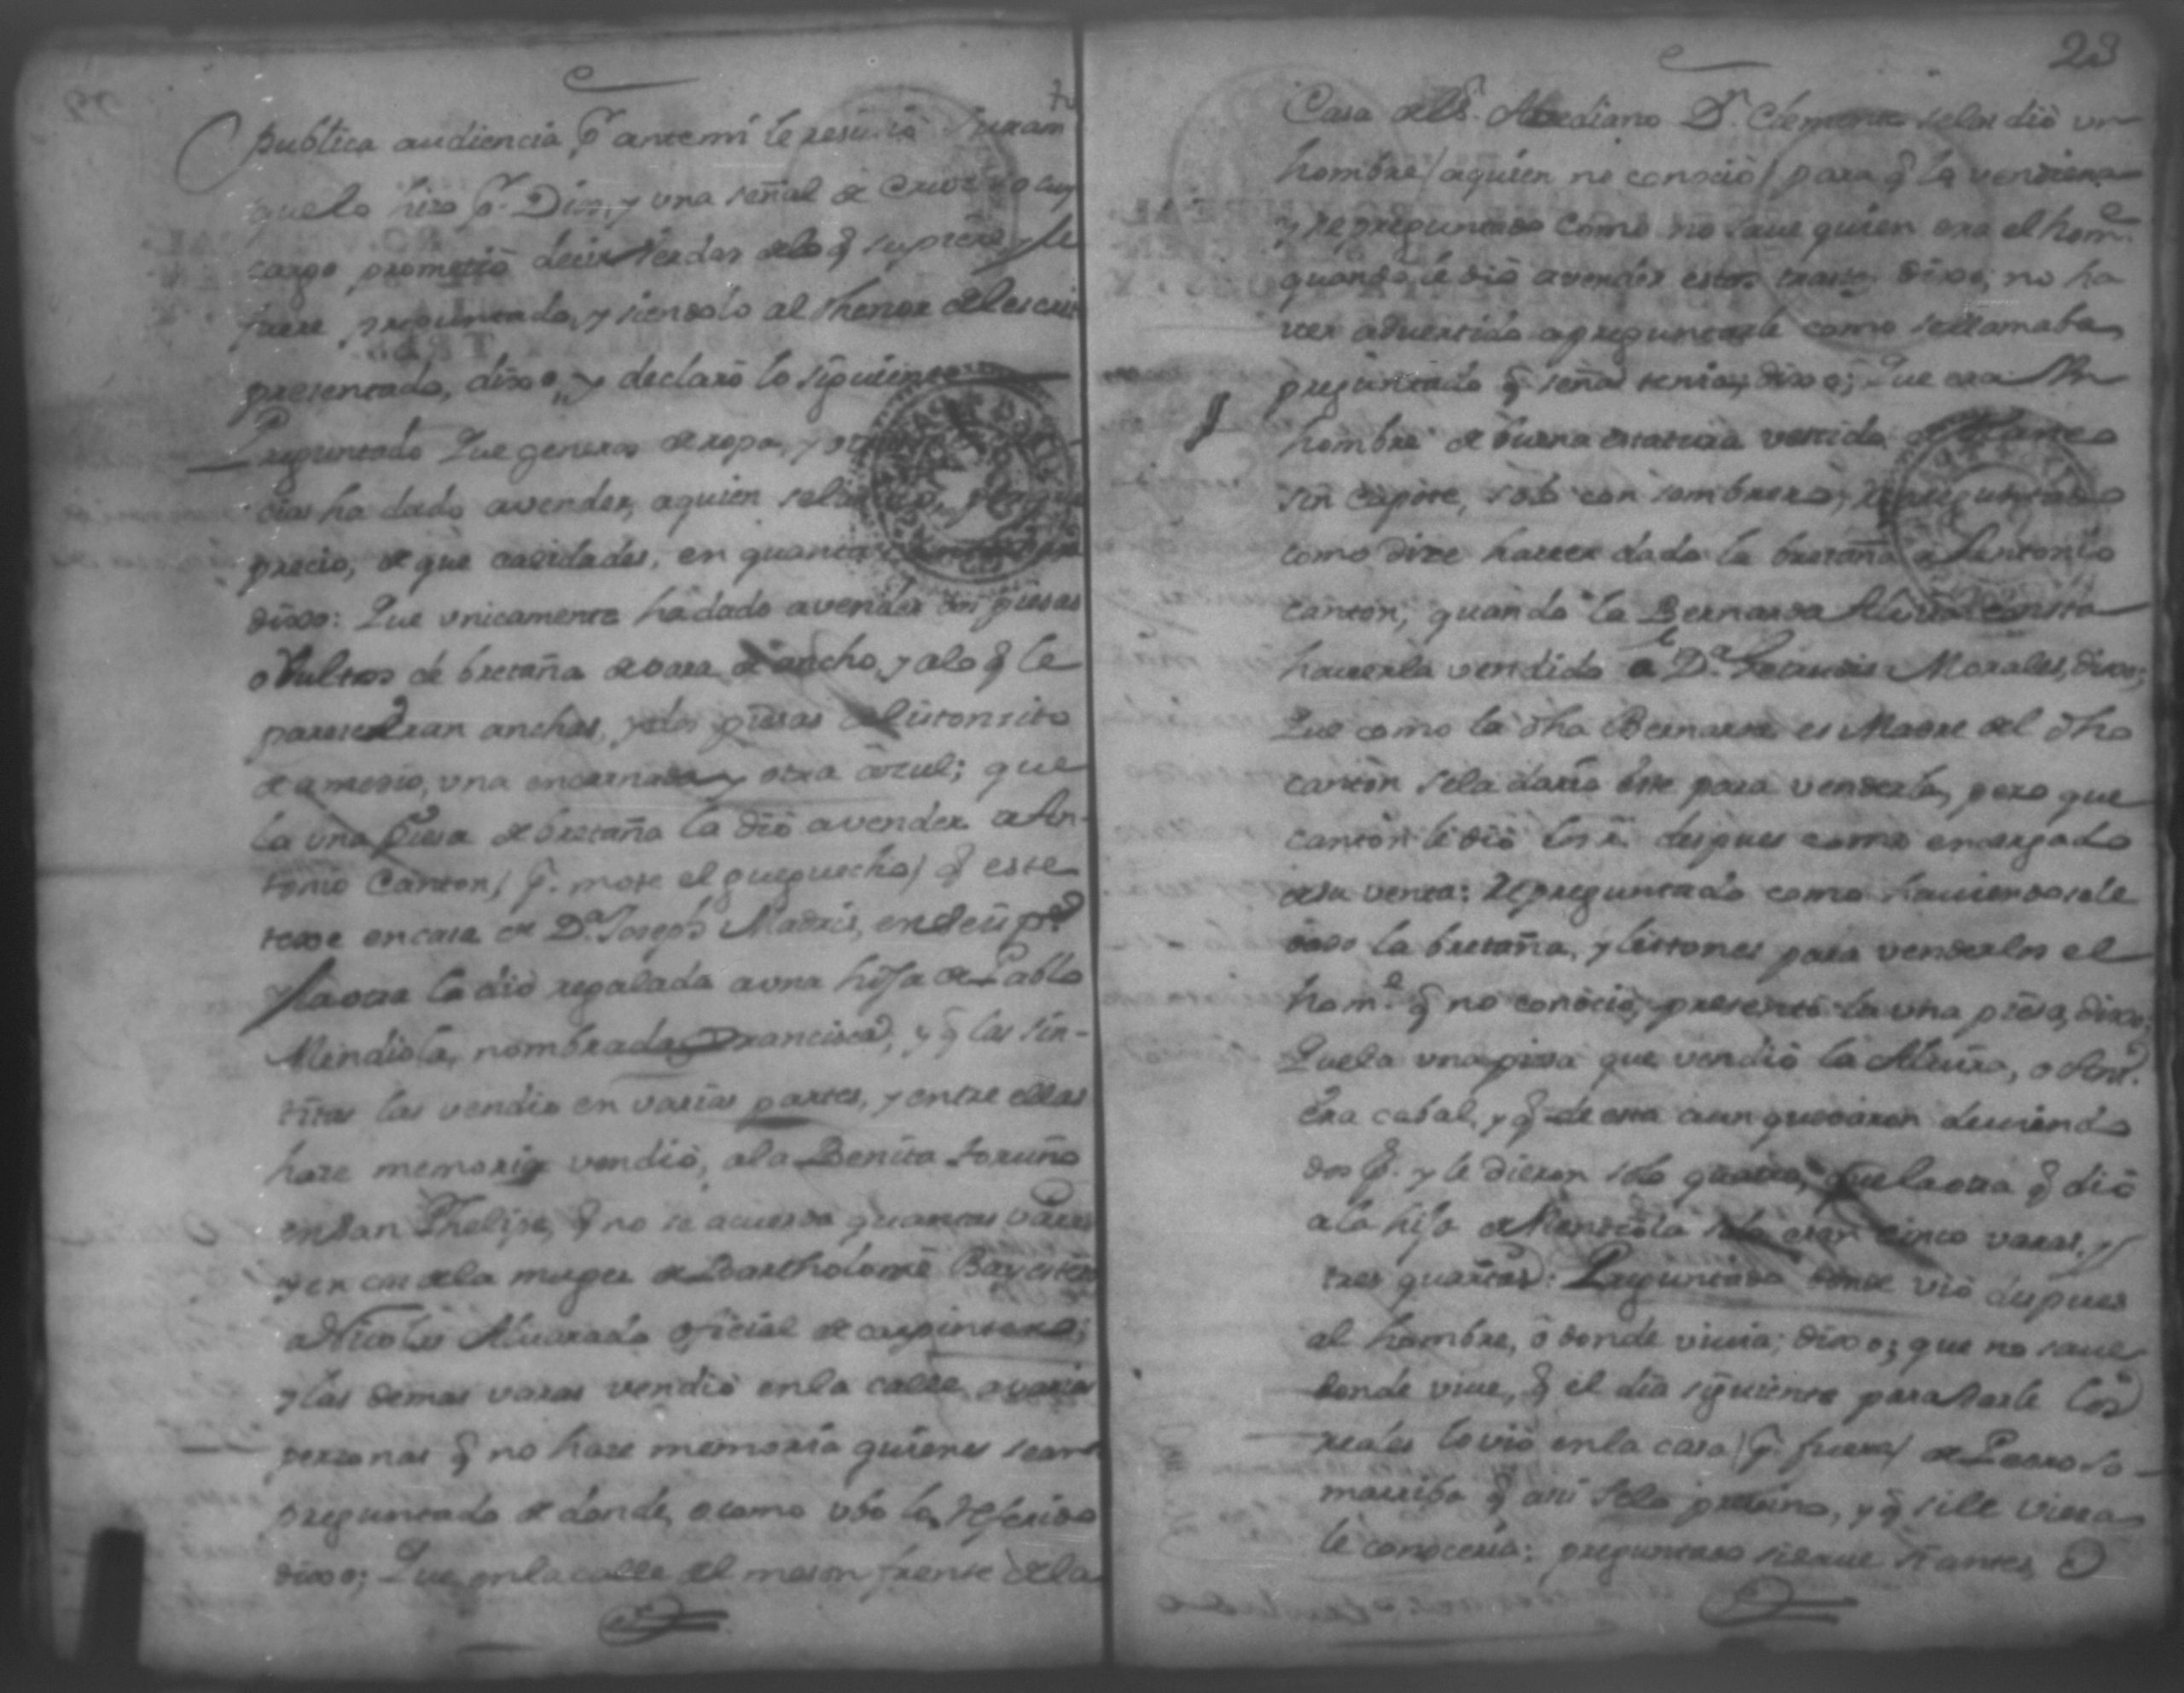 publica audiencia, q̃ antemi le resiuio Juram
que lo hizo p.r Dios, y una señal de Cruz
cargo prometió decir verdad de lo q̃ supiere y le
fuere preguntado, y siendolo al thenor del escri
presentado, dixo, y declaró lo siguiente
Preguntado Que generos de ropa, y
cias ha dado avender, aquien
precio, de que calidades, en quanta
dixo: Que unicamente ha dado avender dos piesas
o bultos de bretaña de vara de ancho, y alo q̃ le
paresen eran anchas, y dos piesas de listonsito
de amedio, una encarnada y otra asul; que
la una piesa de bretaña la dió avender a An-
tonio Canton, (p.r mote el gueguecho) q̃ este
texe en casa de D.n Joseph Madris, en
y la otra la dió regalada a una hija de Pablo
Mendiola, nombrada Francisca, y q̃ las sin-
titas las vendio en varias partes, y entre ellas
hace memoria vendió, ala Benita Foruño
en San Phelipe, q̃ no se acuerda quantas varas
y en casa dela muger de Bartholomé
a Nicolas Aluarado oficial de carpintero;
y las demas varas vendió en la calle avarias
personas q̃ no hase memoria quienes sean
preguntado de donde, o como ubo lo referido
dixo; Que en la calle del meson frente dela
23
Casa del S.r Arcediano D.n Clemente selas dió un
hombre (aquien no conoció) para q̃ la vendiera
y repreguntado como no saue quien era el hom.e
quando le dió avender estos trastes dixo, no ha
uer aduertido apreguntarle como se llamaba
preguntado q̃ señas tenia, dixo; Que era Un
hombre de buena estatura vestido de blanco
sin capote, solo con sombrero, repreguntado
como dise hauer dado la bretaña a Antonio
canton, quando la Bernarda consta
hauerla vendido a D.a Morales, dixo;
Que como la dha Bernarda es Madre del dho
canton sela daria este para venderla, pero que
canton le dió los r.s despues como encargado
desu venta: Repreguntado como hauiendosele
dado la bretaña, y listones para venderlos el
hom.e q̃ no conoció, presentó la una piesa, dixo;
Quela una piesa que vendió la, o Ant.o
era cabal, y q̃ de esta aun quedaron deuiendo
dos p.s y le dieron solo quatro, que la otra q̃ dió
ala hija de Mendiola solo eran cinco varas, y
tres quartas: Preguntado donde vió despues
al hombre, ó donde viuia; dixo; que no saue
donde viue, q̃ el dia siguiente para darle los
reales lo vió en la casa (p.r fuera) de Pedro So-
marriba q̃ asi selo preuino, y q̃ si le viera
le conoceria: preguntado si antes